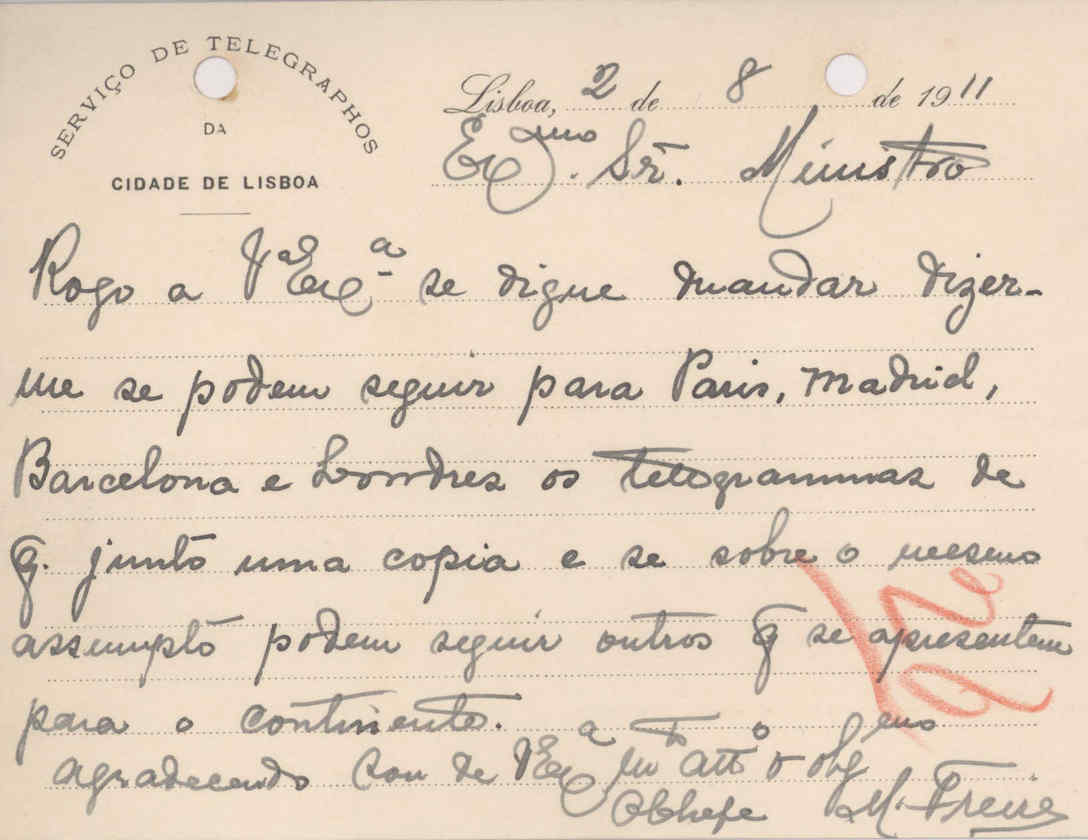 SERVIÇO DE TELEGRAPHOS
DA
CIDADE DE LISBOA
Lisboa, 2 de 8 de 1911
Exmo. Snr. Ministro
Rogo a Va Exca se digne mandar dizer-
me se podem seguir para Paris, Madrid,
Barcelona e Londres os telegrammas de
q. junto uma copia e se sobre o mesmo
assumpto podem seguir outros q se apresentem
para o continente.
Agradecendo sou de V Exa mto atto e obgmo
O Chefe M. Freire